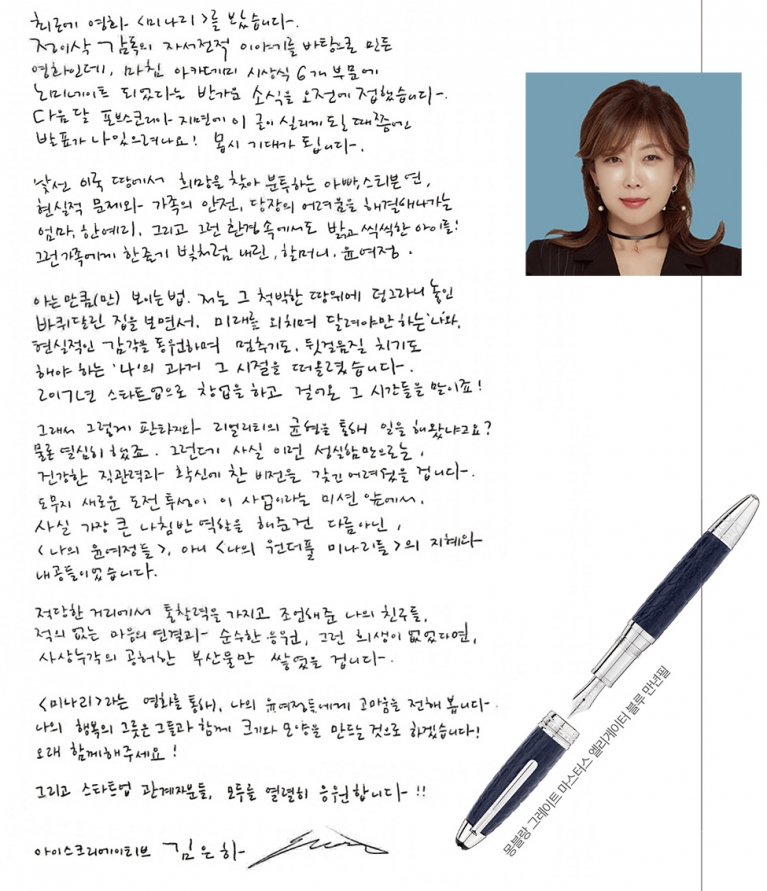 최근에 영화 <미나리>를 보았습니다.
정이삭 감독의 자서전적 이야기를 바탕으로 만든
영화인데, 마침 아카데미 시상식 6개 부문에
노미네이트 되었다는 반가운 소식을 오전에 접했습니다.
다음 달 포브스코리아 지면에 이 글이 실리게 될 때쯤에는
발표가 나있으려나요! 몹시 기대가 됩니다.
낯선 미국 땅에서 희망을 찾아 분투하는 아빠, 스티븐 연,
현실적 문제와 가족의 안전, 당장의 어려움을 해결해나가는
엄마, 한예리, 그리고 그런 환경 속에서도 밝고 씩씩한 아이들!
그런 가족에게 한줄기 빛처럼 내린, 할머니, 윤여정.
아는 만큼(만) 보이는 법. 저는 그 척박한 땅위에 덩그러니 놓인
바퀴달린 집을 보면서, 미래를 외치며 달려야만 하는 '나'와,
현실적인 감각을 동원하며 멈추기도, 뒷걸음질 치기도
해야 하는 '나'의 과거 그 시절을 떠올렸습니다.
2017년 스타트업으로 창업을 하고 걸어온 그 시간들을 말이죠!
그래서 그렇게 판타지와 리얼리티의 균형을 통해 일을 해왔냐고요?
물론 열심히 했죠. 그런데 사실 이런 성실함만으로는,
건강한 직관력과 확신에 찬 비전을 갖긴 어려웠을 겁니다.
도무지 새로운 도전 투성이 이 사업이라는 미션 앞에서,
사실 가장 큰 나침반 역할을 해준건 다름아닌,
<나의 윤여정들>, 아니 <나의 원더풀 미나리들>의 지혜와
내공들이었습니다.
적당한 거리에서 통찰력을 가지고 조언해준 나의 친구들,
적의 없는 마음의 연결과 순수한 응원, 그런 희생이 없었다면,
사상누각의 공허한 부산물만 쌓였을 겁니다.
<미나리>라는 영화를 통해, 나의 윤여정들에게 고마움을 전해 봅니다.
나의 행복의 그릇은 그들과 함께 크기와 모양을 만드는 것으로 하겠습니다!
오래 함께해주세요!
그리고 스타트업 관계자분들, 모두를 열렬히 응원합니다!!
아이스크리에이티브 김은하
몽블랑 그레이트 마스터스 엘리게이터 블루 만년필